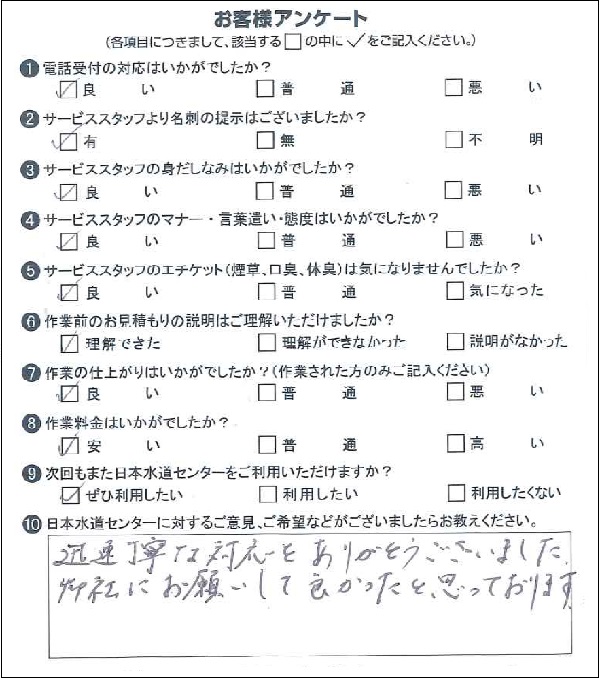 お客様アンケート
(各項目につきまして、該当する□の中に✓をご記入ください。)
❶電話受付の対応はいかがでしたか?
☑良い □普通 □悪い
❷サービススタッフより名刺の提示はございましたか?
☑有 □無 □不明
❸サービススタッフの身だしなみはいかがでしたか?
☑良い □普通 □悪い
❹サービススタッフのマナー・言葉遣い・態度はいかがでしたか?
☑良い □普通 □悪い
❺サービススタッフのエチケット(煙草、口臭、体臭)は気になりませんでしたか?
☑良い □普通 □気になった
❻作業前のお見積もりの説明はご理解いただけましたか?
☑理解できた □理解ができなかった □説明がなかった
❼作業の仕上がりはいかがでしたか?(作業された方のみご記入ください)
☑良い □普通 □悪い
❽作業料金はいかがでしたか?
☑安い □普通 □高い
❾次回もまた日本水道センターをご利用いただけますか?
☑ぜひ利用したい □利用したい □利用したくない
❿日本水道センターに対するご意見、ご希望などがございましたらお教えください。
迅速丁寧な対応をありがとうございました。
御社にお願いして良かったと思っております